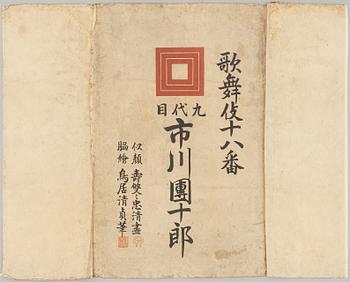 歌舞伎十八番
九代目
市川團十郎
似顔 壽雙々忠清畫
脇繪 鳥居清貞筆